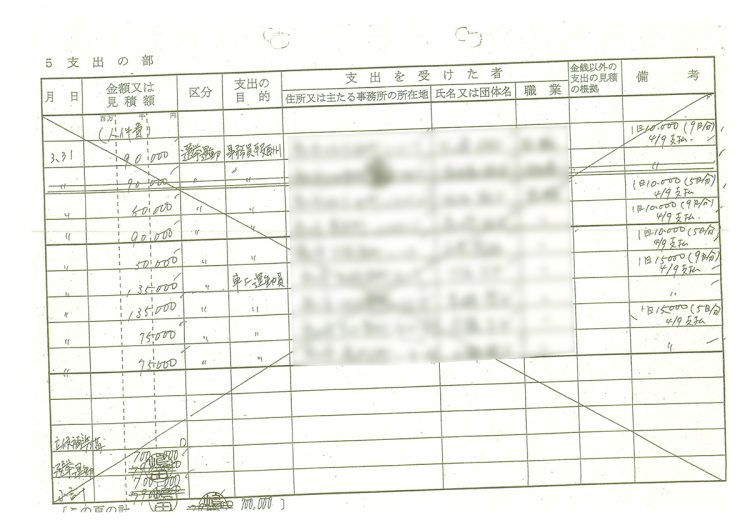 5 支出の部
月 日 金額又は見積額 区分 支出の目的 支出を受けた者 金銭以外の支出の見積の根拠 備 考
住所又は主たる事務所の所在地 氏名又は団体名 職 業
百万 千 円
(人件費)
3.31 90,000 選挙運動 事務員 1日10,000(9日分) 4/9支払
〃 90,000 〃 〃 〃
〃 50,000 〃 〃 1日10,000(5日分) 4/9支払
〃 90,000 〃 〃 1日10,000(9日分) 4/9支払
〃 50,000 〃 〃 1日10,000(5日分) 4/9支払
〃 135,000 〃 車上運動員 1日15,000(9日分) 4/9支払
〃 135,000 〃 〃 〃
〃 75,000 〃 〃 1日15,000(5日分) 4/9支払
〃 75,000 〃 〃 〃
立候補準備 0
選挙運動 700,000
小計 700,000
[この頁の計 700,000 ]